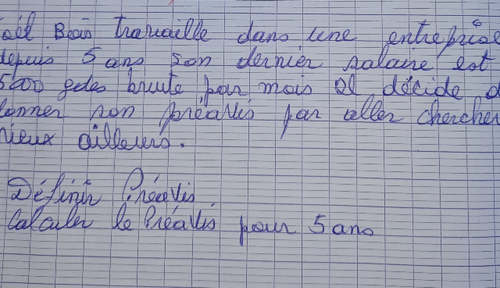 oël Bois travaille dans une entreprise
depuis 5 ans son dernier salaire est
gdes brute par mois Il décide d
onner son préavis par aller chercher
mieux ailleurs.
Définir Préavis
Calculer le Préavis pour 5 ans